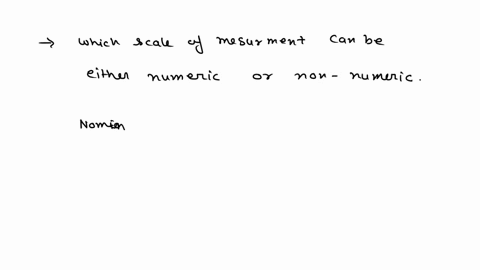 → which scale of mesurment can be
either numeric or non-numeric.
Nomin